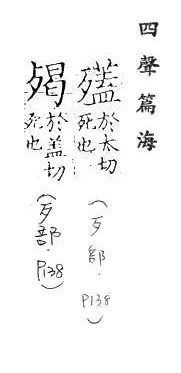 四聲篇海
𣩄於太切死也(歹部.P138)
㱝於盖切死也(歹部.P138)